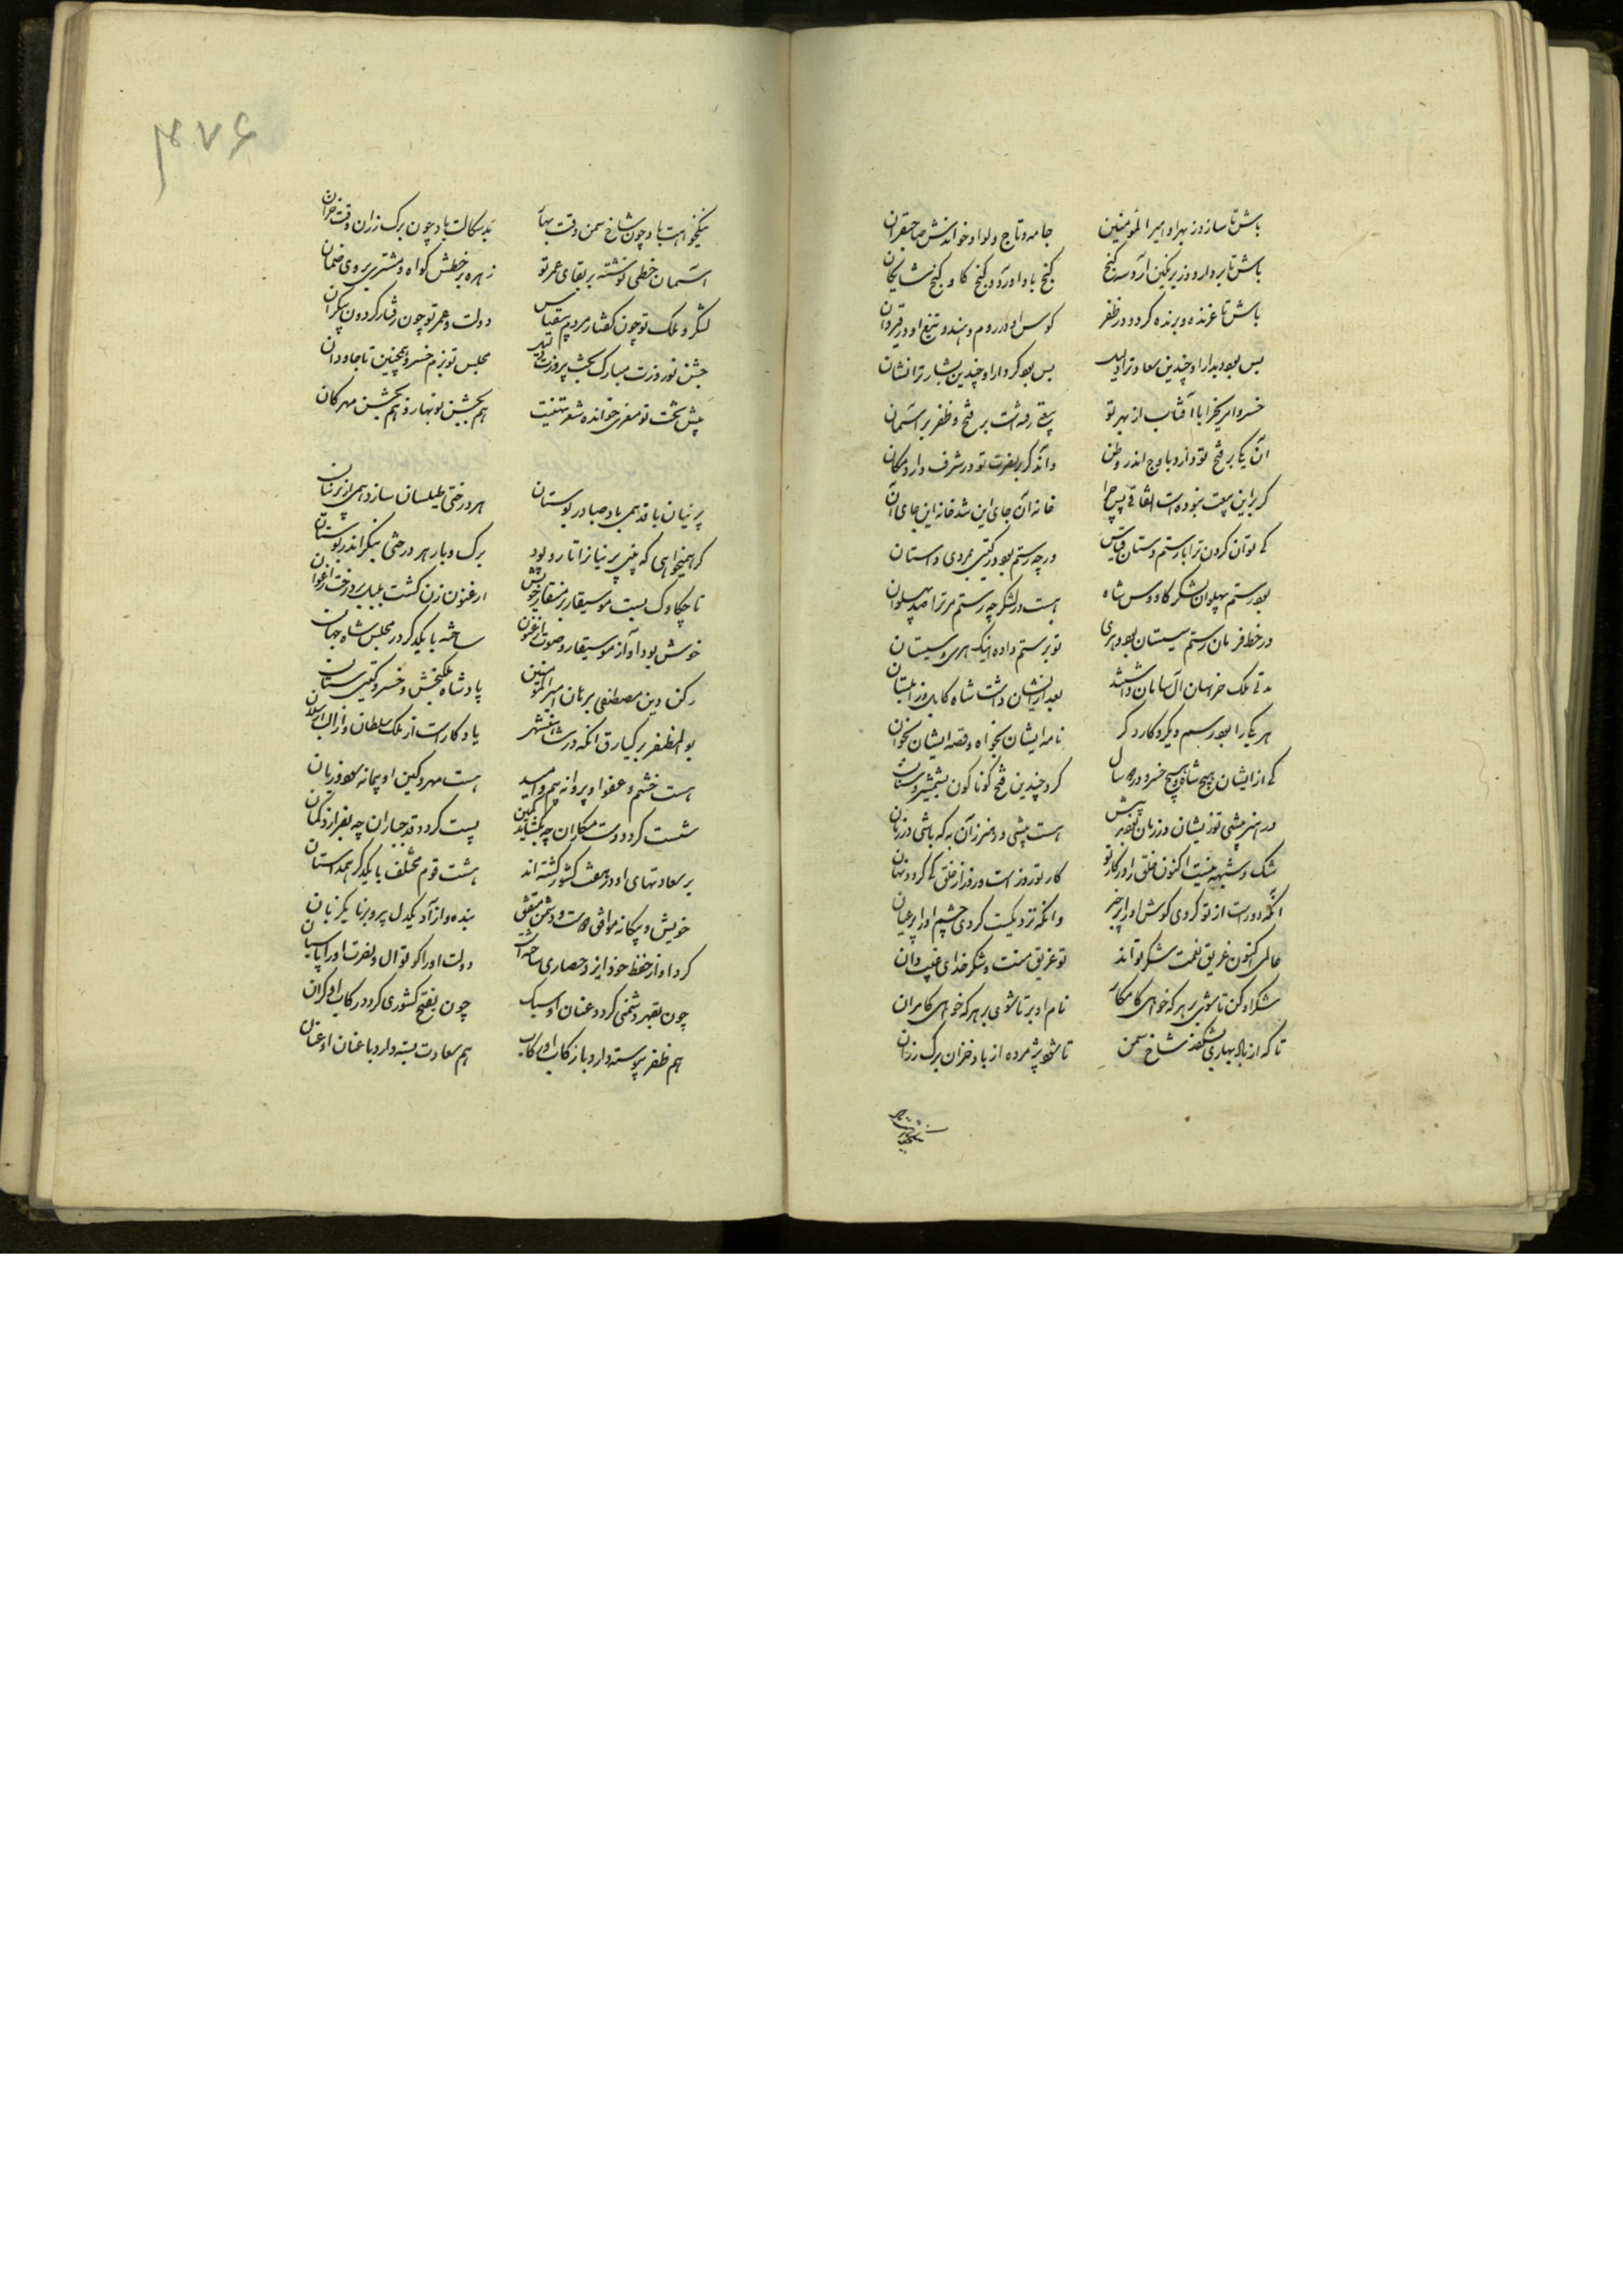 باش تا سازد ز بهر او امیر المؤمنین جامه و تاج و لوا و خواندش صاحبقران
باش تا بردارد و زیر نگین آرد سه گنج گنج باد آورد و گنج کاو و گنج شایکان
باش تا غرنده و برنده کردد در ظفر کوس او در روم و هند و تیغ او در قیروان
بس بود دیدار او چندین سعادت را دلیل بس بود کردار او چندین بشارت را نشان
خسروا مریخ را با آفتاب از بهر تو بیعتی رفته است بر فتح و ظفر بر آسمان
آن یکی بر فتح تو دارد باوج اندر وطن واند کر بر نصرت تو در شرف دارد مکان
کر براین بیعت نبوده است اتفاقی پس چرا خانه آن جای این شد خانه این جای آن
کی توان کردن ترا با رستم دستان قیاس ورچه رستم بود در گیتی بمردی داستان
بود رستم پهلوان لشکر کاووس شاه هست در لشکر چه رستم مر ترا صد پهلوان
در خط فرمان رستم سیستان بود و هری تو برستم داده اینک هری و سیستان
مدتی ملک خراسان آل سامان داشتند بعد ازیشان داشت شاه کابل و زابلستان
هر یکی را بود رسم دیگر و کار دگر نامه ایشان بخواه و قصه ایشان بخوان
کی از ایشان هیچ شاه و هیچ خسرو در سال کرد چندین فتح کوناکون بشمشیر و سنان
در هنر پیشی تو زیشان ور زمان بود پیش هست پیشی در هنر زان به که باشی در زمان
شک و شبهه نیست اکنون خلق را در کار تو کار تو روز است و روز از خلق کی کردد نهان
آنکه دور است از تو کردی کوش او را پر خبر وانکه نزدیکست کردی چشم او را پر عیان
عالمی اکنون غریق نعمت شکر تواند تو غریق منت و شکر خدای غیب دان
شکر او کن تا شوی بر هر که خواهی کامکار نام او بر تا شوی بر هر که خواهی کامران
تا که از باد بهاری بشکفد شاخ سمن تا شود پژمرده از باد خزان برک رزان
نیکخواهت
۴۷۶
نیکخواهت باد چون شاخ سمن وقت بهار بدسکالت باد چون برک رزان وقت خزان
آسمان خطی نوشته بر بقای عمر تو زهره بر خطش کواه و مشتری بر وی ضمان
لشکر و ملک تو چون کفتار مردم بیقیاس دولت و عمر تو چون رفتار کردون بیکران
جشن نوروزت مبارک بخت پیروزت بلند مجلس تو بزم خسرو همچنین تا جاودان
پیش تخت تو معزی خوانده شعر تهنیت هم بجشن نوبهار و هم بجشن مهرکان
پرنیان بافد همی باد صبا در بوستان هر درختی طیلسان سازد همی از پرنیان
کر همیخواهی که بینی پرنیانرا تار و پود برک و بار هر درختی بنکر اندر بوستان
تا چکاوک بست موسیقار بر منقار خویش ارغنون زن کشت بلبل بر درخت ارغوان
خوش بود آواز موسیقار و صوت ارغنون ساخته با یکدکر در مجلس شاه جهان
رکن دین مصطفی برهان امیرالمؤمنین پادشاه ملکبخش و خسرو گیتی ستان
بوالمظفر برکیارق انکه در شاهنشهی یادکار است از ملک سلطان و از الب ارسلان
هست خشم و عفو او پروانه بیم و امید هست مهر و کین او پیمانه سود و زیان
سست کردد دست مکاران چه بکشاید کمین پست کردد قد جباران چه بفرازد کمان
بر سعادتهای او در هفت کشور کشته اند هشت قوم مختلف با یکدکر همداستان
خویش و بیکانه موافق دوست و دشمن متفق بنده و آزاد یکدل پیر و برنا یکزبان
کرد او از حفظ خود ایزد حصاری ساخته است دولت او را کوتوال و نصرت او را پاسبان
چون بقهر دشمنی کردد عنان او سبک چون بفتح کشوری کردد رکاب او کران
هم ظفر پیوسته دارد با رکاب او رکاب هم سعادت بسته دارد با عنان او عنان